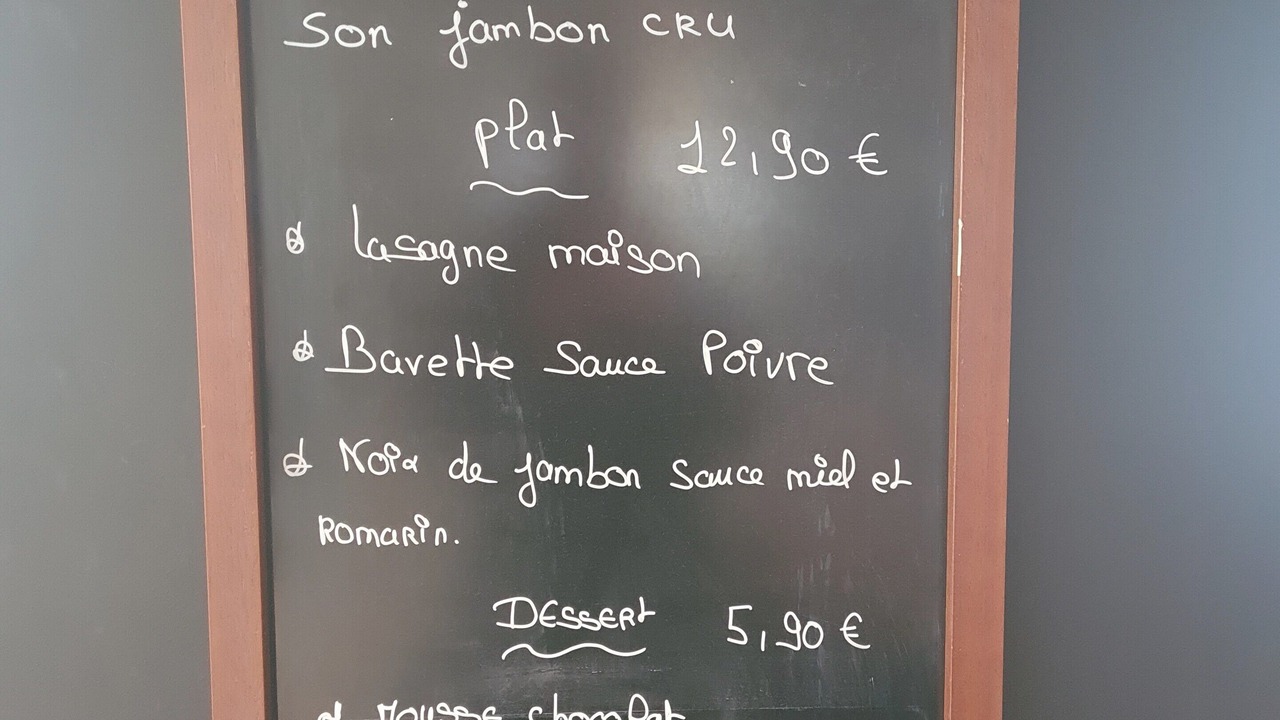 Son jambon CRU
plat 12,90 €
Lasagne maison
Bavette Sauce Poivre
Noix de jambon Sauce miel et
Romarin.
DESSERt 5,90 €
Mousse